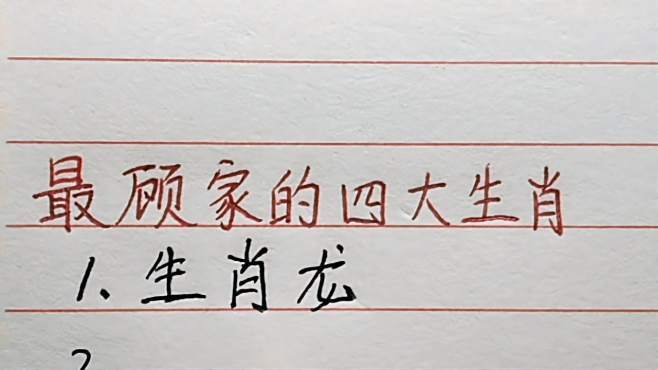 最顾家的四大生肖
1、生肖龙
2